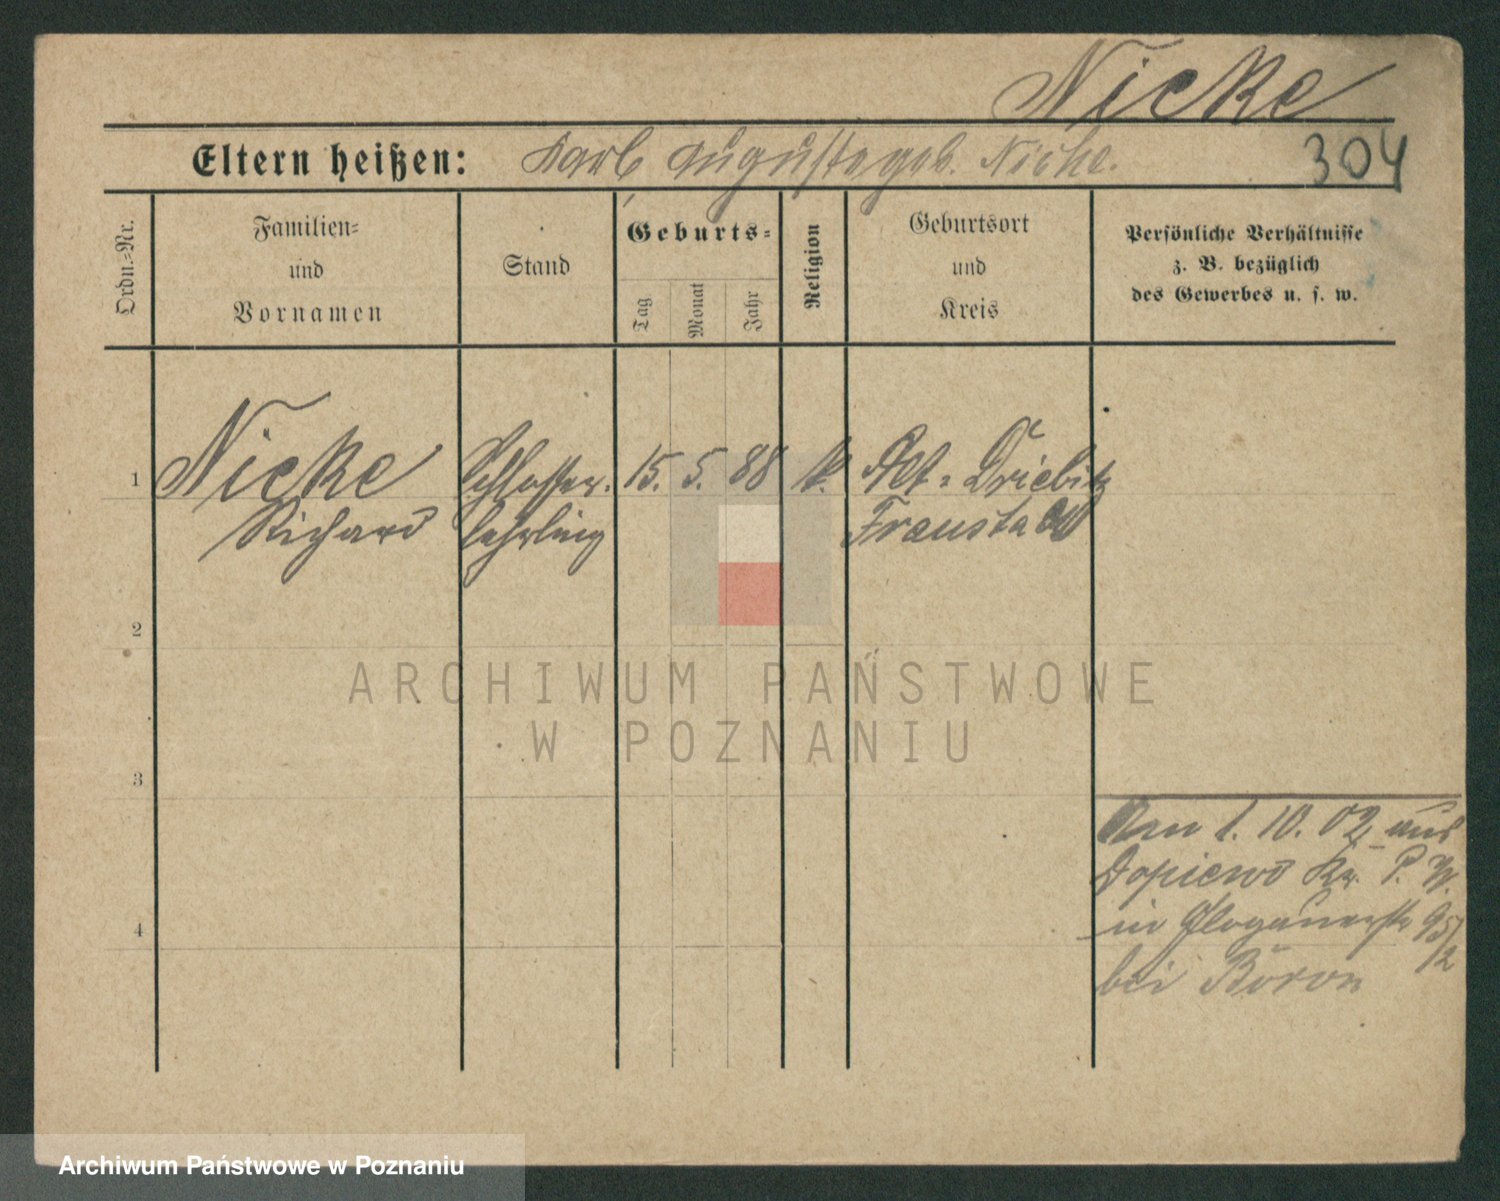 Nicke
Eltern heißen: Karl, Auguste geb. Nicke.
304
Ordn.-Nr.
Familien-
und
Vornamen
Stand
Geburts-
Tag
Monat
Jahr
Religion
Geburtsort
und
Kreis
Persönliche Verhältnisse
z. B. bezüglich
des Gewerbes u. s. w.
1 Nicke Schlosser- 15. 5. 88 k. Alt-Driebitz
Richard lehrling Fraustadt
2
3
4
Den 1. 10. 02 aus
Dopiewo Kr. P. W.
in Glogauerstr 95/2
bei
ARCHIWUM PAŃSTWOWE
W POZNANIU
Archiwum Państwowe w Poznaniu